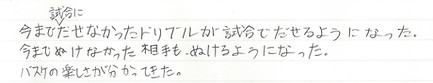 今まで試合にだせなかったドリブルが試合でだせるようになった。
今までぬけなかった相手も、ぬけるようになった。
バスケの楽しさが分かってきた。